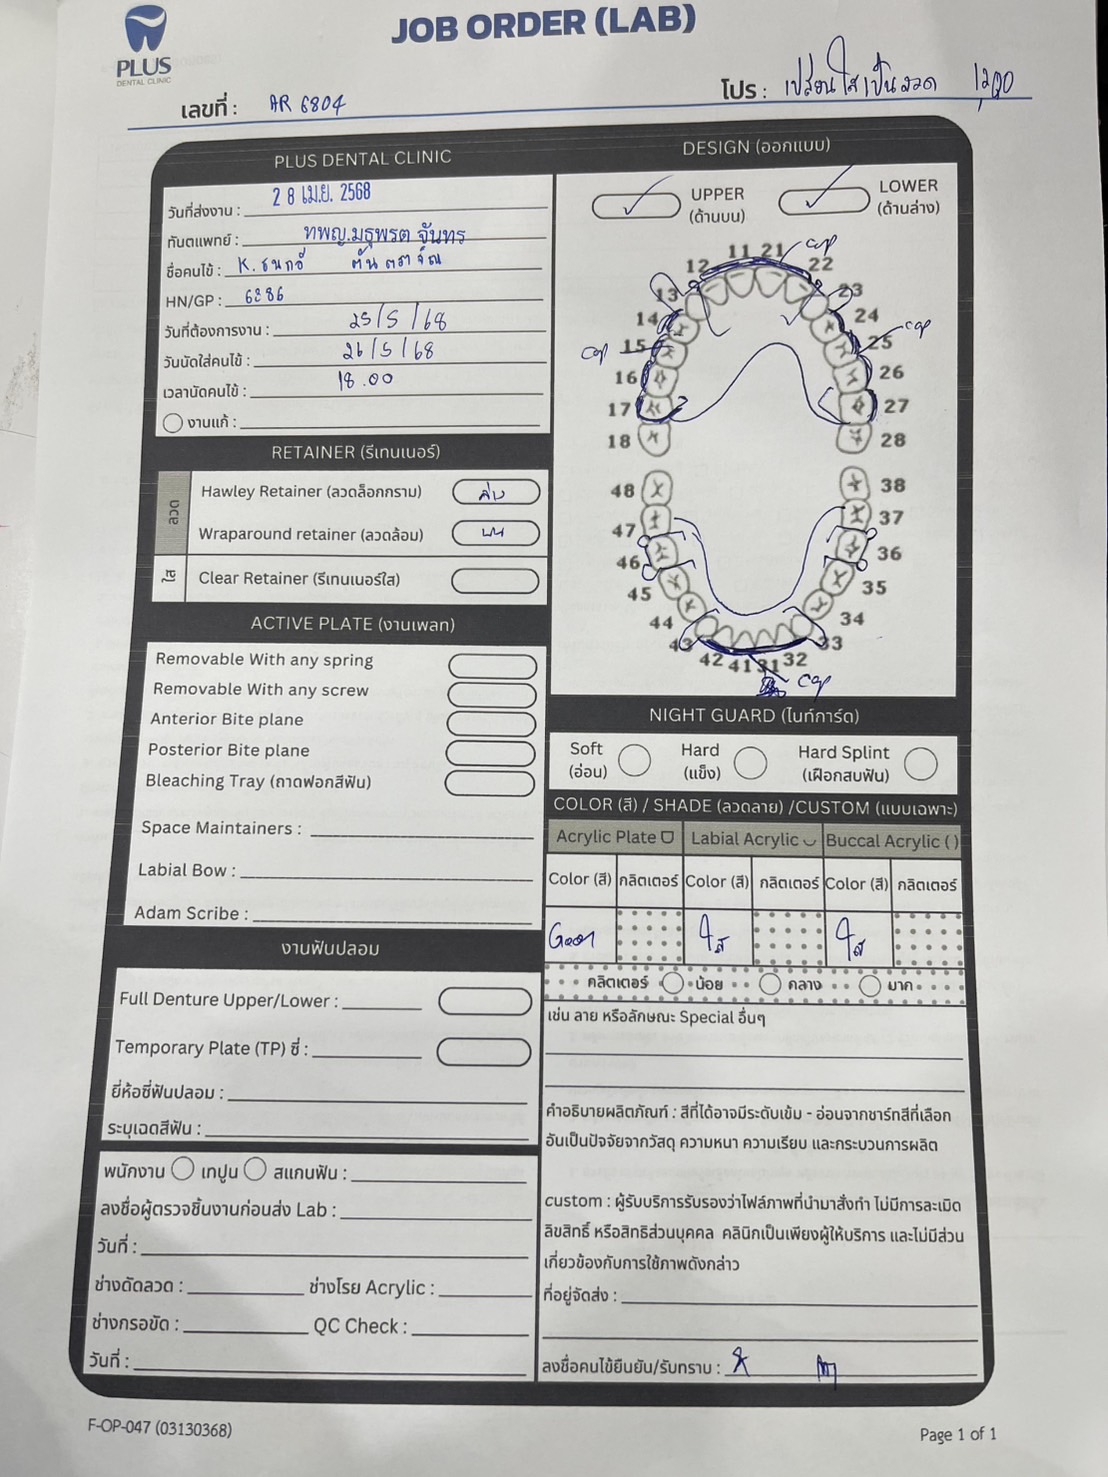 JOB ORDER (LAB)
PLUS
DENTAL CLINIC
เลขที่ : AR 6804
โปร : เปลี่ยนใสเป็นลวด 1200
PLUS DENTAL CLINIC
วันที่ส่งงาน : 28 เม.ย. 2568
ทันตแพทย์ : ทพญ.มธุพรต จันทร
ชื่อคนไข้ : K.
HN/GP : 6886
วันที่ต้องการงาน : 25/5/68
วันนัดใส่คนไข้ : 26/5/68
เวลานัดคนไข้ : 18.00
งานแก้ :
RETAINER (รีเทนเนอร์)
ลวด
Hawley Retainer (ลวดล็อกกราม) ล่าง
Wraparound retainer (ลวดล้อม) บน
ใส
Clear Retainer (รีเทนเนอร์ใส)
ACTIVE PLATE (งานเพลท)
Removable With any spring
Removable With any screw
Anterior Bite plane
Posterior Bite plane
Bleaching Tray (ถาดฟอกสีฟัน)
Space Maintainers :
Labial Bow :
Adam Scribe :
งานฟันปลอม
Full Denture Upper/Lower :
Temporary Plate (TP) ซี่ :
ยี่ห้อซี่ฟันปลอม :
ระบุเฉดสีฟัน :
พนักงาน เทปูน สแกนฟัน :
ลงชื่อผู้ตรวจชิ้นงานก่อนส่ง Lab :
วันที่ :
ช่างดัดลวด : ช่างโรย Acrylic :
ช่างกรอขัด : QC Check :
วันที่ :
DESIGN (ออกแบบ)
UPPER
(ด้านบน)
LOWER
(ด้านล่าง)
11 21 cap
12 22
13 23
14 24
cap 15 25 cap
16 26
17 27
18 28
48 38
47 37
46 36
45 35
44 34
43 33
42 41 31 32
cap
NIGHT GUARD (ไนท์การ์ด)
Soft
(อ่อน)
Hard
(แข็ง)
Hard Splint
(เฝือกสบฟัน)
COLOR (สี) / SHADE (ลวดลาย) /CUSTOM (แบบเฉพาะ)
Acrylic Plate Labial Acrylic Buccal Acrylic ( )
Color (สี) กลิตเตอร์ Color (สี) กลิตเตอร์ Color (สี) กลิตเตอร์
ใส ใส
กลิตเตอร์ น้อย กลาง มาก
เช่น ลาย หรือลักษณะ Special อื่นๆ
คำอธิบายผลิตภัณฑ์ : สีที่ได้อาจมีระดับเข้ม - อ่อนจากชาร์ทสีที่เลือก
อันเป็นปัจจัยจากวัสดุ ความหนา ความเรียบ และกระบวนการผลิต
custom : ผู้รับบริการรับรองว่าไฟล์ภาพที่นำมาสั่งทำ ไม่มีการละเมิด
ลิขสิทธิ์ หรือสิทธิส่วนบุคคล คลินิกเป็นเพียงผู้ให้บริการ และไม่มีส่วน
เกี่ยวข้องกับการใช้ภาพดังกล่าว
ที่อยู่จัดส่ง :
ลงชื่อคนไข้ยืนยัน/รับทราบ :
F-OP-047 (03130368)
Page 1 of 1